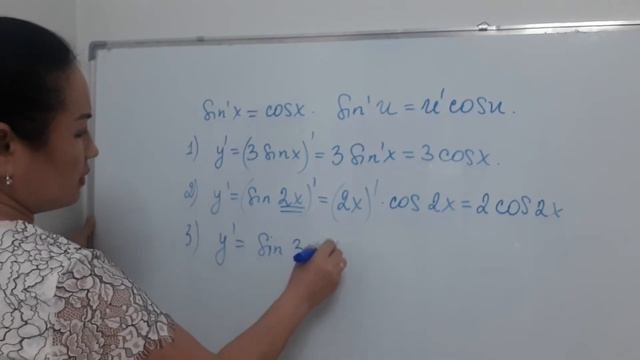 sin'x = cosx. sin'u = u'cosu.
1) y' = (3 sinx)' = 3 sin'x = 3 cosx.
2) y' = (sin 2x)' = (2x)' · cos 2x = 2 cos 2x
3) y' = sin 3